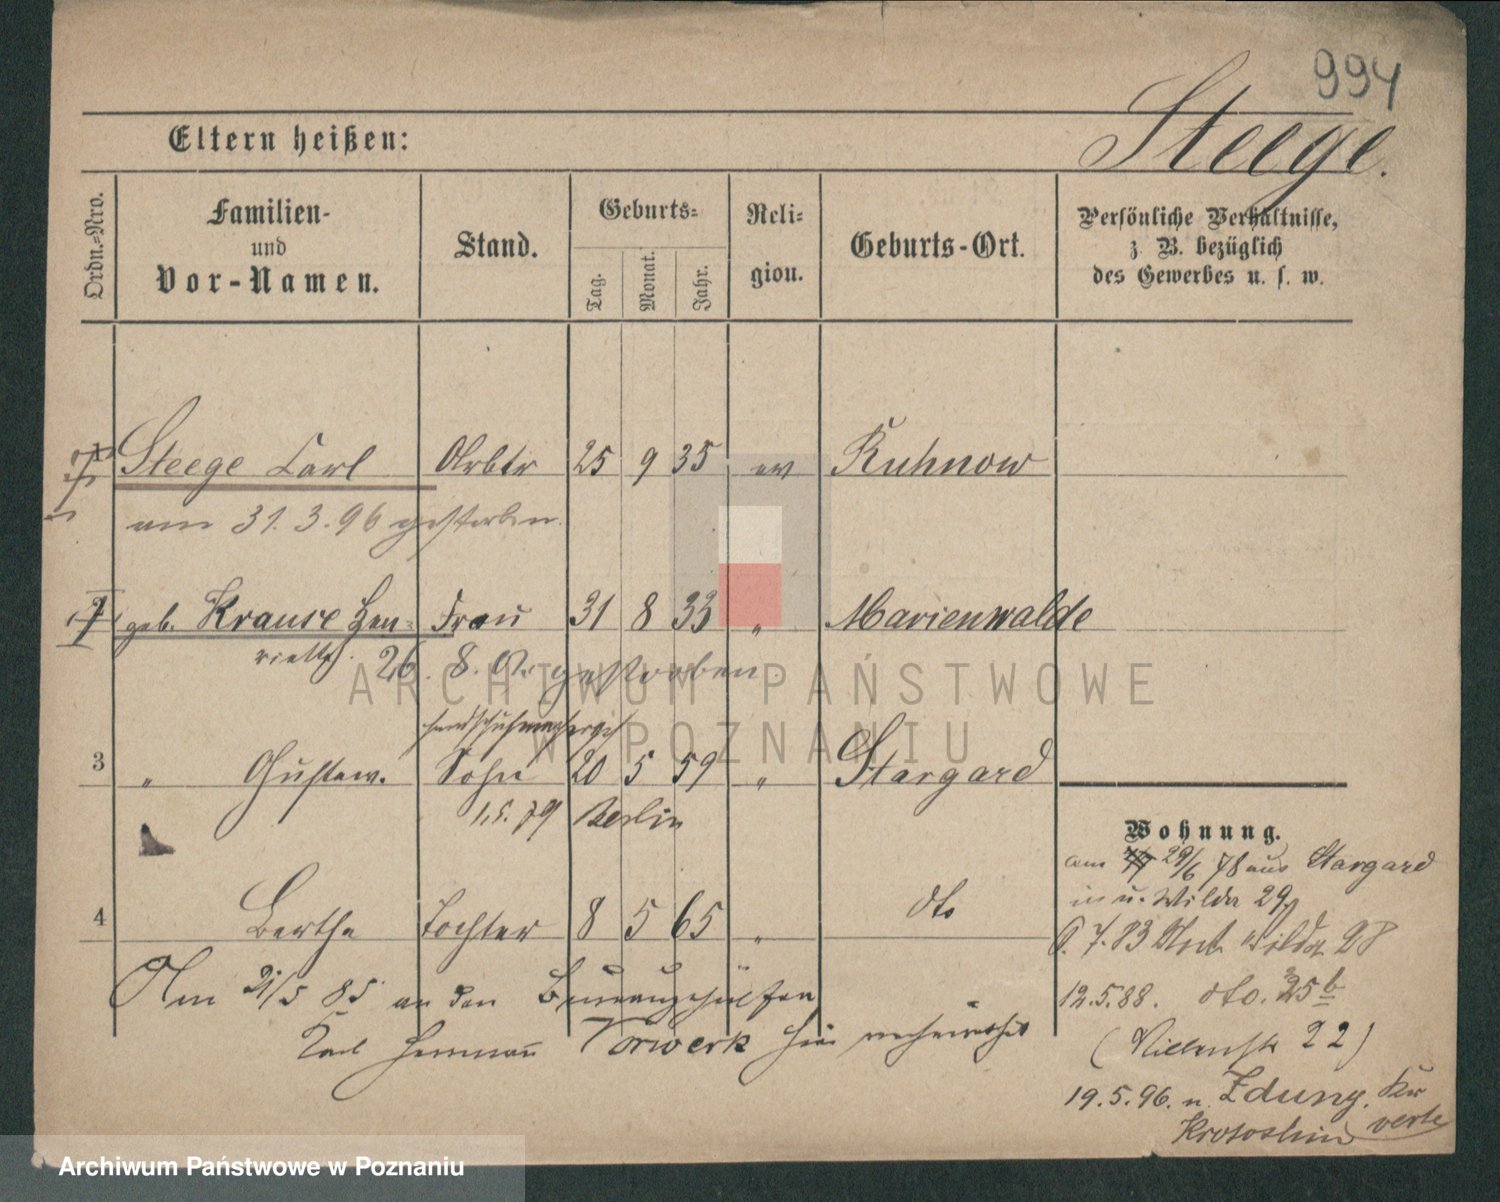 994
Steege.
Eltern heißen:
Ordn.=Nro.
Familien-
und
Vor-Namen.
Stand.
Geburts=
Tag.
Monat.
Jahr.
Reli=
gion.
Geburts-Ort.
Persönliche Verhältnisse,
z. B. bezüglich
des Gewerbes u. s. w.
1 Steege Carl Arbtr 25 9 35 ev Kuhnow
am 31.3.96 gestorben.
2 geb. Krause Hen= Frau 31 8 33 " Marienwalde
riette. 26. 8. gestorben.
3 " Gustaw. Sohn 20 5 59 " Stargard
1.5.79 Berlin
Wohnung.
am 29/6 78 aus Stargard
in u. Wilda 29
4 Bertha Tochter 8 5 65 " dto
7.83 Wilda 28
Am 21/5 85 an den Bureaugehülfen
12.5.88. dto. 25b
Karl Hermann Vorwerk hier verheirathet
(22)
19.5.96. n. Zduny, Kr
Krotoschin verte
ARCHIWUM PAŃSTWOWE
W POZNANIU
Archiwum Państwowe w Poznaniu